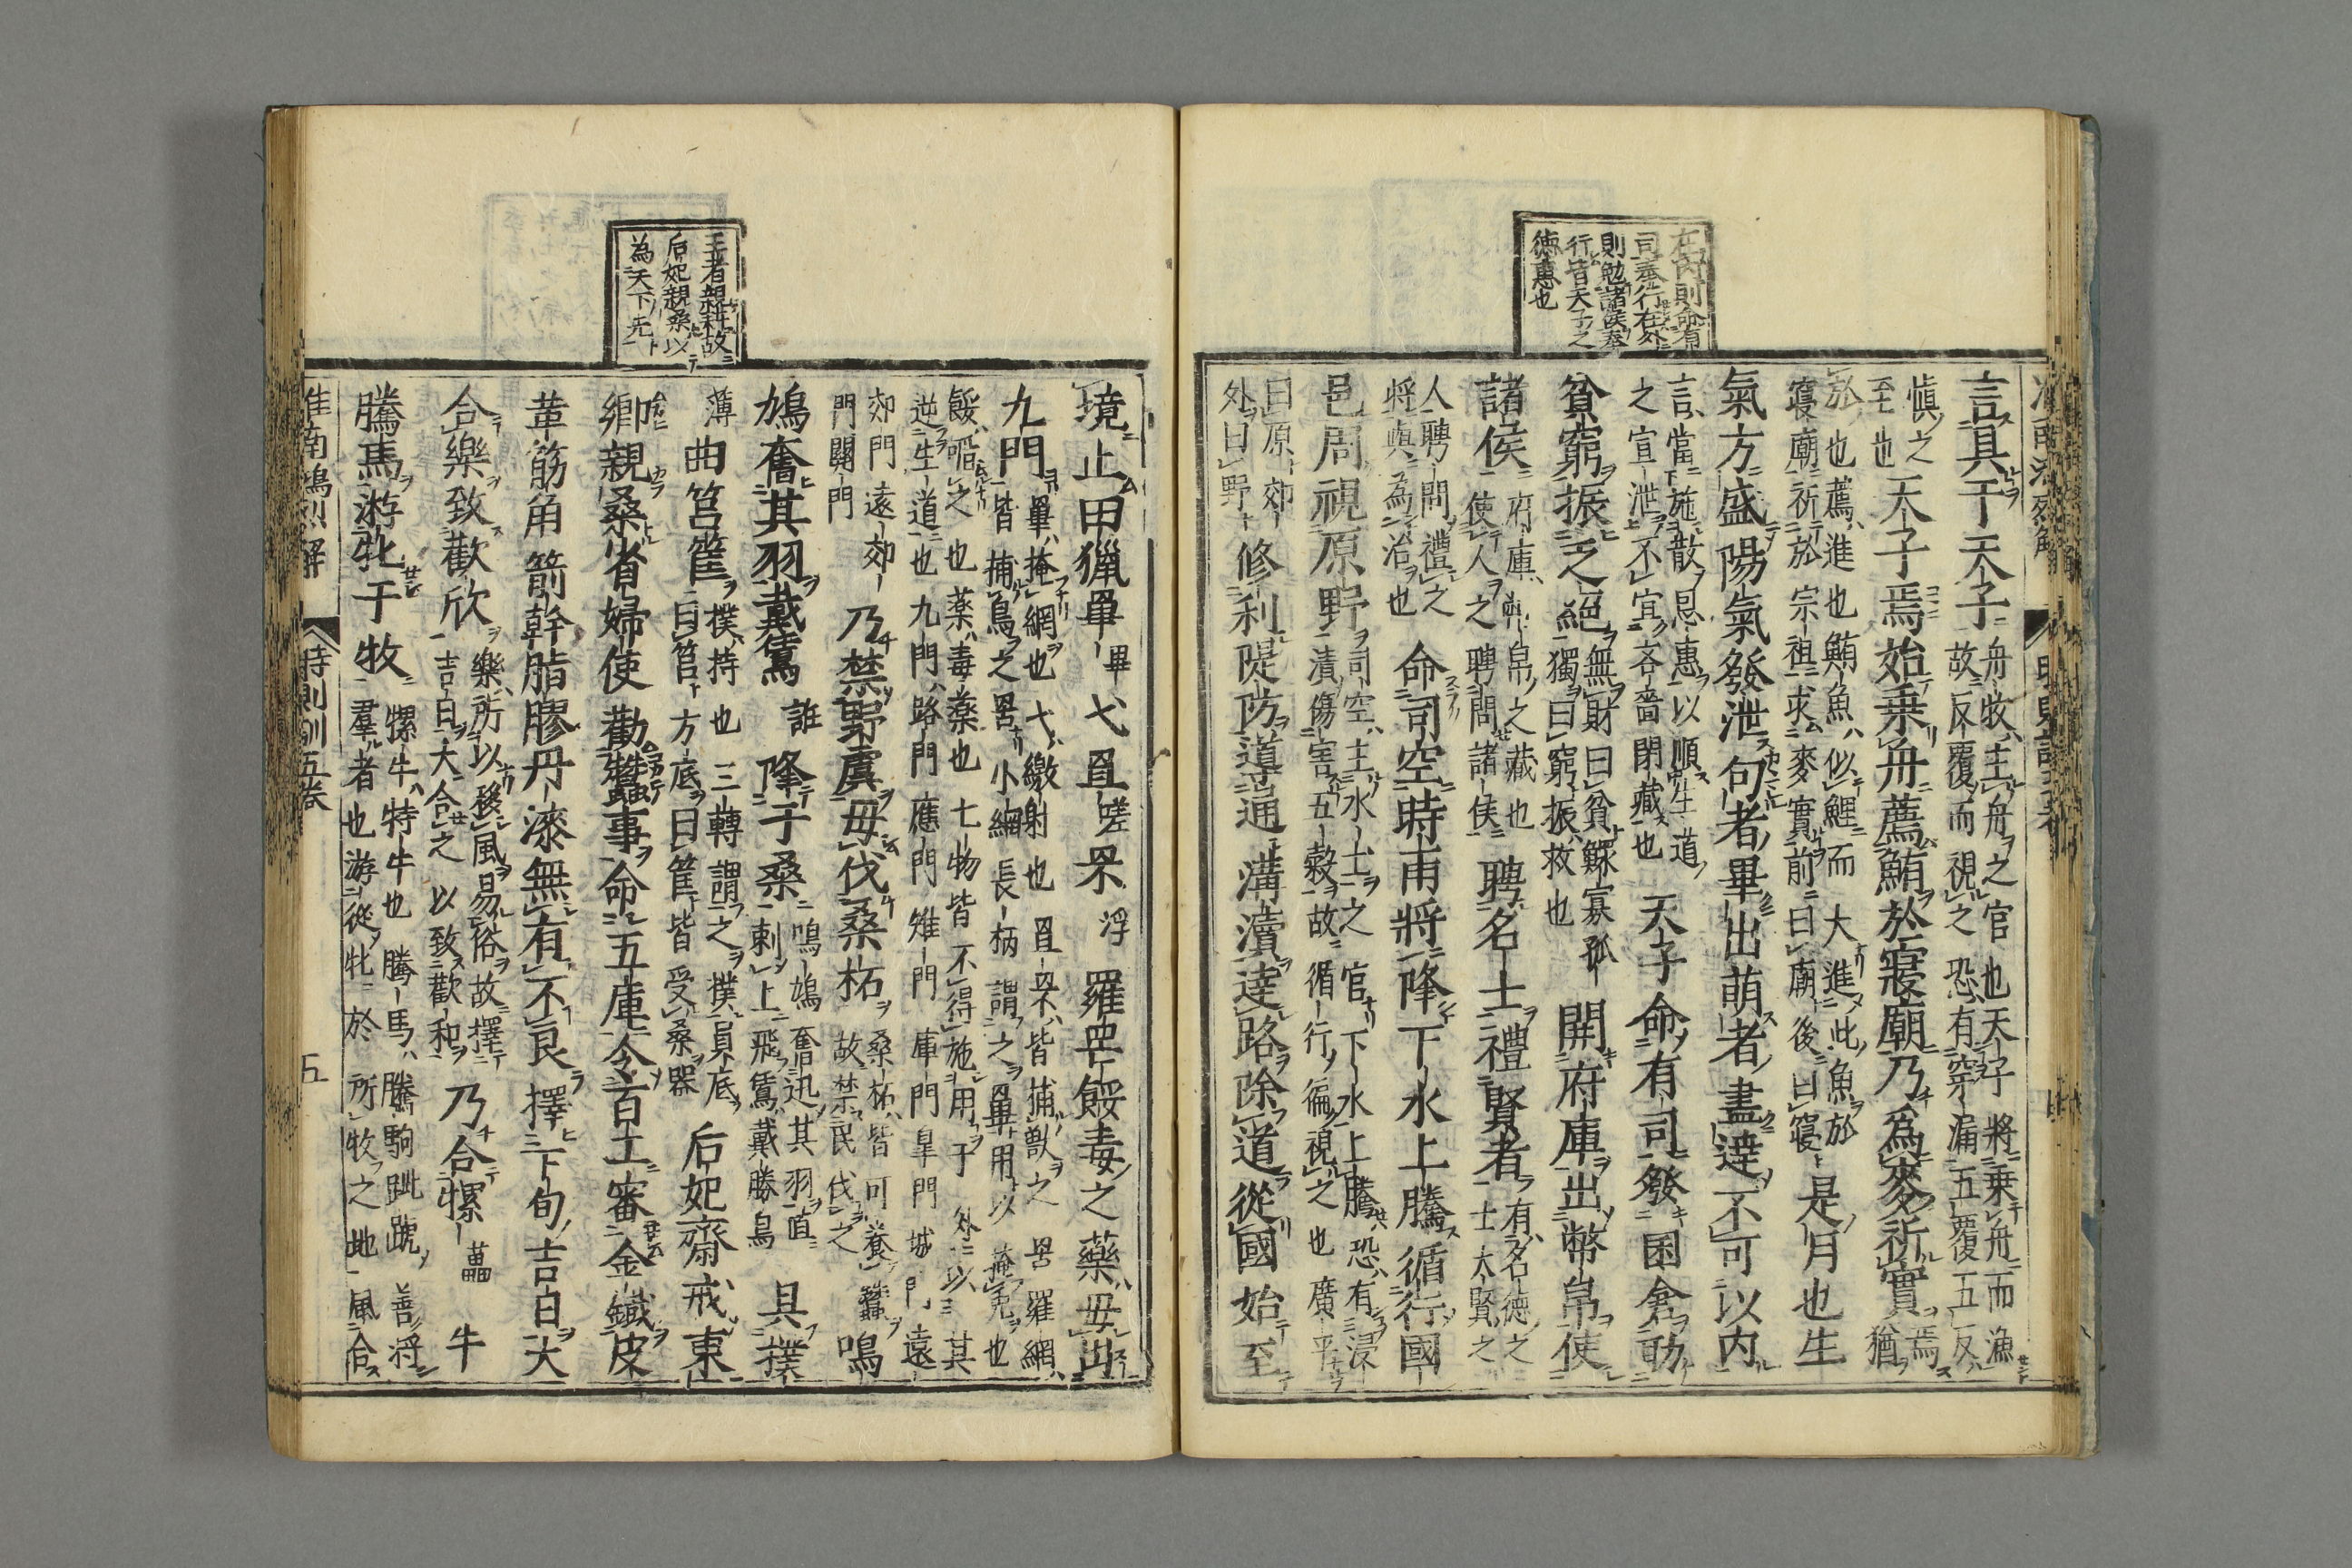 在内則命有
司奉行在外
則勉諸侯奉
行皆天子之
徳惠也
言具于天子舟牧主舟之官也天子將乗舟而漁
故反覆而視之恐有穿漏五覆五反
慎之至也天子焉始乗舟薦鮪於寢廟乃爲麥祈實焉猶
於也薦進也鮪魚似鯉而大進此魚於
寢廟祈於宗祖求麥實前曰廟後曰寢是月也生
氣方盛陽氣發泄句者畢出萌者盡達不可以内
言當施散恩惠以順生道
之宣泄不宜吝嗇閉藏也天子命有司發囷倉助
貧窮振乏絕無財曰貧鰥寡孤
獨曰窮振救也開府庫出幣帛使
諸侯府庫幣帛之藏也
使人之聘問諸侯聘名士禮賢者有名德之
士大賢之
人聘問禮之
將與為治也命司空時雨將降下水上騰循行國
邑周視原野司空主水土之官下水上騰恐有浸
漬傷害五穀故循行徧視之也廣平
曰原郊
外曰野修利隄防道通溝瀆達路除道從國始至
王者親耕故
后妃親桑以
為天下先
境止田獵畢畢弋罝嗟罘浮羅罔餧毒之藥毋出
九門畢掩網也弋繳射也罝罘皆捕獸之罟羅網
皆捕鳥之罟小網長柄謂之畢用以掩兔也
餧啗之也薬毒薬也七物皆不得施用于外以其
逆生道也九門路門應門雉門庫門皐門城門遠
郊門遠郊
門關門乃禁野虞毋伐桑柘桑柘皆可養蠶
故禁民伐之鳴
鳩奮其羽戴鵀誰降于桑鳴鳩奮迅其羽直
刺上飛鵀戴勝鳥具撲
薄曲筥筐撲持也三轉謂之撲員底
曰筥方底曰筐皆受桑器后妃齋戒東
鄉親桑省婦使勸蠶事命五庫令百工審金鐵皮
革筋角箭幹脂膠丹漆無有不良擇下旬吉日大
合樂致歡欣樂所以移風易俗故擇
吉日大合之以致歡和乃合㹎藟牛
騰馬游牝于牧㹎牛特牛也騰馬騰駒跳踶善將
羣者也游從牝於所牧之地風合
淮南鴻烈解
時則訓五卷
五